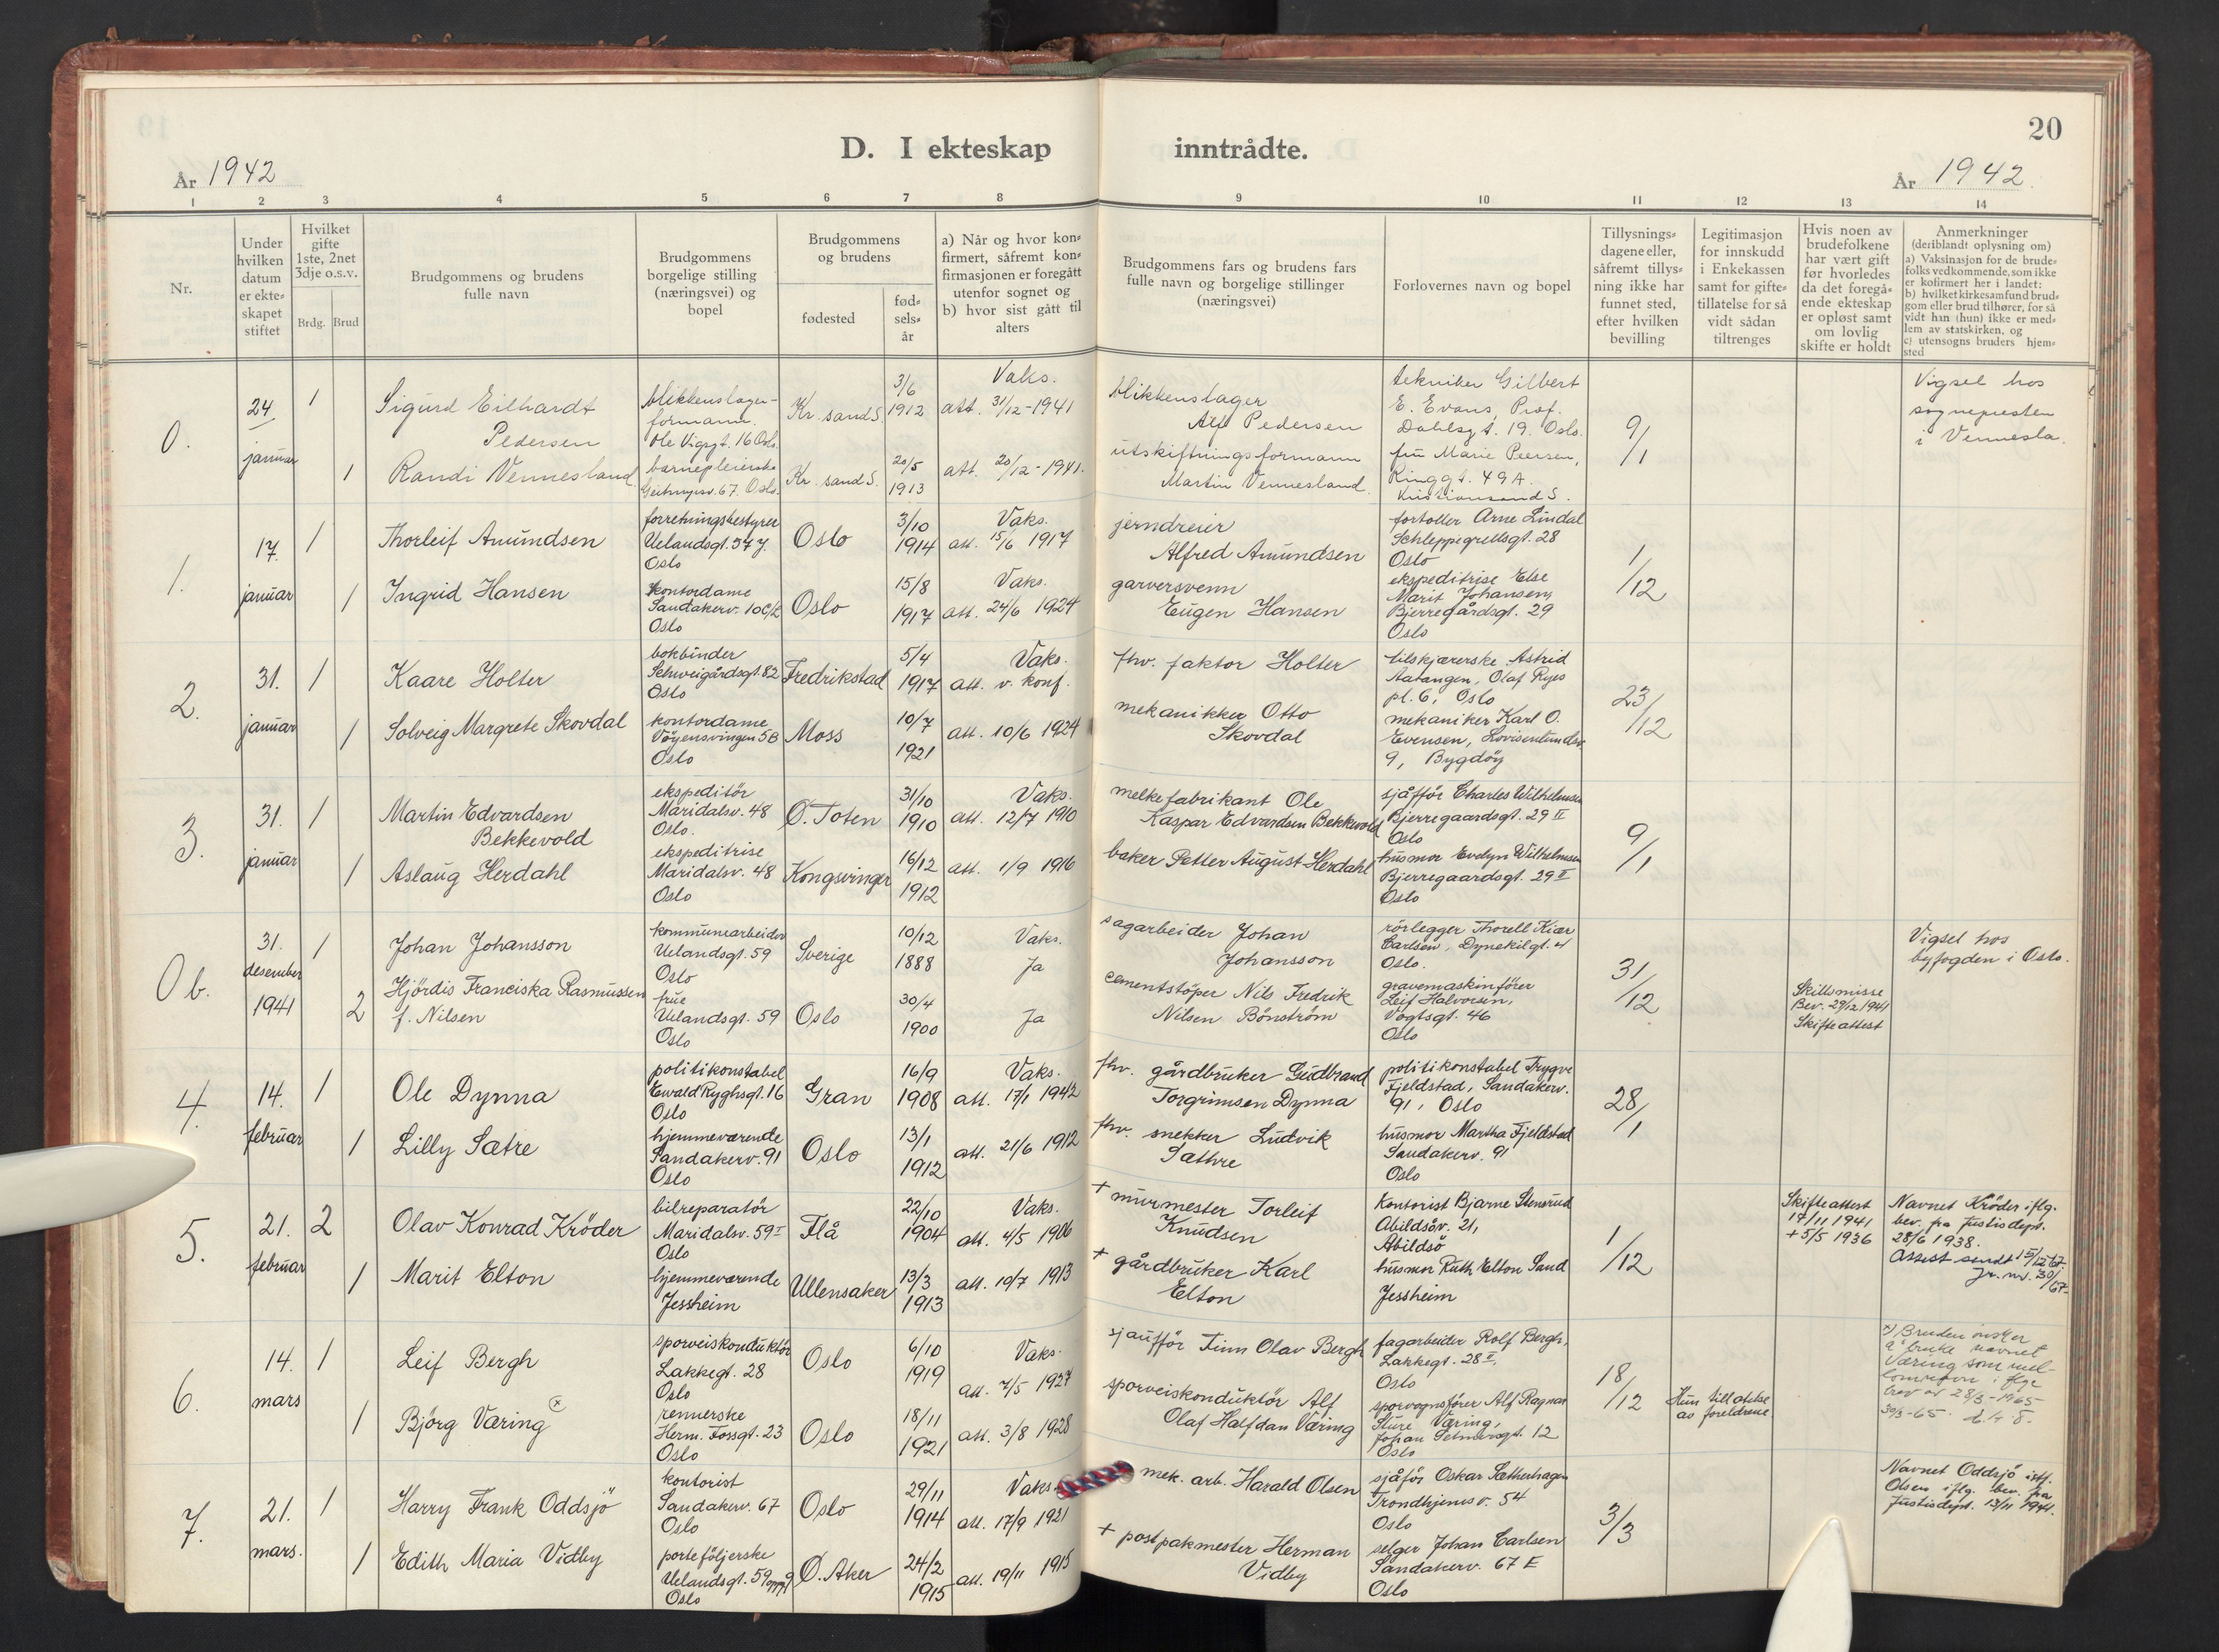 20
D. I ekteskap inntrådte.
År 1942
År 1942
1 2 3 4 5 6 7 8 9 10 11 12 13 14
Nr.
Under
hvilken
datum
er ekte-
skapet
stiftet
Hvilket
gifte
1ste, 2net
3dje o.s.v.
Brdg. Brud
Brudgommens og brudens
fulle navn
Brudgommens
borgelige stilling
(næringsvei) og
bopel
Brudgommens
og brudens
fødested
fød-
sels-
år
a) Når og hvor kon-
firmert, såfremt kon-
firmasjonen er foregått
utenfor sognet og
b) hvor sist gått til
alters
Brudgommens fars og brudens fars
fulle navn og borgelige stillinger
(næringsvei)
Forlovernes navn og bopel
Tillysnings-
dagene eller,
såfremt tillys-
ning ikke har
funnet sted,
efter hvilken
bevilling
Legitimasjon
for innskudd
i Enkekassen
samt for gifte-
tillatelse for så
vidt sådan
tiltrenges
Hvis noen av
brudefolkene
har vært gift
før hvorledes
da det foregå-
ende ekteskap
er opløst samt
om lovlig
skifte er holdt
Anmerkninger
(deriblandt oplysning om)
a) Vaksinasjon for de brude-
folks vedkommende, som ikke
er kofirmert her i landet:
b) hvilket kirkesamfund brud-
gom eller brud tilhører, for så
vidt han (hun) ikke er med-
lem av statskirken, og
c) utensogns bruders hjem-
sted
0.
24.
januar
1
Sigurd Eilhardt
Pedersen
blikkenslager-
formann.
Ole Vigsgt. 16 Oslo.
Kr. sand S.
3/6
1912
Vaks.
att. 31/12-1941
blikkenslager
Alf Pedersen
tekniker Gilbert
E. Evans, Prof.
Dahlsgt. 19. Oslo.
9/1
Vigsel hos
sognepresten
i Vennesla.
1
Randi Vennesland
barnepleierske
Geitmyrsv. 67. Oslo.
Kr. sand S.
20/5
1913
att. 20/12-1941.
utskiftningsformann
Martin Vennesland.
fru Marie Peersen,
Ringgt. 49A.
Kristiansand S.
1.
17.
januar
1
Thorleif Amundsen
forretningsbestyrer
Uelandsgt. 57 J.
Oslo
Oslo
3/10
1914
Vaks.
att. 15/6 1917
jerndreier
Alfred Amundsen
fortoller Arne Lindal
Schleppegrellsgt. 28
Oslo
1/12
1
Ingrid Hansen
kontordame
Sandakerv. 10 C/L
Oslo
Oslo
15/8
1917
Vaks.
att. 24/6 1924
garversvenn
Eugen Hansen
ekspeditrise Else
Marit Johansen,
Bjerregårdsgt. 29
Oslo
2.
31.
januar
1
Kaare Holter
bokbinder
Schweigårdsgt. 82
Oslo
Fredrikstad
5/4
1917
Vaks.
att. v. konf.
fhv. faktor Holter
tilskjærerske Astrid
Aarangen, Olaf Ryes
pl. 6, Oslo
23/12
1
Solveig Margrete Skovdal
kontordame
Vöyensvingen 5B
Oslo
Moss
10/7
1921
att. 10/6 1924
mekanikker Otto
Skovdal
mekaniker Karl O.
Evensen,
9, Bygdöy
3.
31.
januar
1
Martin Edvardsen
Bekkevold
ekspeditör
Maridalsv. 48
Oslo.
Ö. Toten
31/10
1910
Vaks.
att. 12/7 1910
melkefabrikant Ole
Kaspar Edvardsen Bekkevold
sjåfför Charles Wilhelmsen
Bjerregaardsgt. 29 II
Oslo
9/1
1
Aslaug Herdahl
ekspeditrise
Maridalsv. 48
Oslo
Kongsvinger
16/12
1912
att. 1/9 1916
baker Petter August Herdahl
husmor Evelyn Wilhelmsen
Bjerregaardsgt. 29 II
Oslo
0 b.
31.
desember
1941
1
Johan Johansson
kommunearbeider
Uelandsgt. 59
Oslo
Sverige
10/12
1888
Vaks.
Ja
sagarbeider Johan
Johansson
rörlegger Thorell Kiær
Carlsen, Dynekilgt. 4
Oslo.
31/12
Vigsel hos
byfogden i Oslo.
2
Hjördis Franciska Rasmussen
f. Nilsen
frue
Uelandsgt. 59
Oslo
Oslo
30/4
1900
Ja
cementstöper Nils Fredrik
Nilsen Bönström
gravemaskinförer
Leif Halvorsen,
Vogtsgt. 46
Oslo
Skillsmisse
Bev. 29/12 1941
Skifteattest
4.
14.
februar
1
Ole Dynna
politikonstabel
Ewald Ryghsgt. 16
Oslo
Gran
16/9
1908
Vaks.
att. 17/1 1942
fhv. gårdbruker Gudbrand
Torgrimsen Dynna
politikonstabel Trygve
Fjeldstad, Sandakerv.
91, Oslo
28/1
1
Lilly Sætre
hjemmeværende
Sandakerv. 91
Oslo
Oslo
13/1
1912
att. 21/6 1912
fhv. snekker Ludvik
Sæthre
husmor Martha Fjeldstad
Sandakerv. 91
Oslo
5.
21.
februar
2
Olav Konrad Kröder
bilreparatör
Maridalsv. 59 I
Oslo
Flå
22/10
1904
Vaks.
att. 4/5 1906
+ murmester Torleif
Knudsen
Kontorist Bjarne Stensrud
Abildsöv. 21,
Abildsö
1/12
Skifteattest
17/11 1941
+ 5/5 1936
Navnet Kröder iflg.
bev. fra Justisdept.
28/6 1938.
Attest sendt 15/12 67
Jr. nr. 30/67.
1
Marit Elton
hjemmeværende
Jessheim
Ullensaker
13/3
1913
att. 19/7 1913
+ gårdbruker Karl
Elton
husmor Ruth Elton Sand
Jessheim
6.
14.
mars
1
Leif Bergh
sporveiskonduktör
Lakkegt. 28
Oslo
Oslo
6/10
1919
Vaks.
att. 7/5 1927
sjaufför Finn Olav Bergh
fagarbeider Rolf Bergh,
Lakkegt. 28 II,
Oslo
18/12
Hun tillatelse
av foreldrene
x) Bruden önsker
å bruke navnet
Væring som mel-
lomnavn iflge
brev av 28/3-1965
30/3-65.
1
Björg Væring x
rennerske
Herm. Fossgt. 23
Oslo
Oslo
18/11
1921
att. 3/8 1928
sporveiskonduktör Alf
Olaf Halfdan Væring
sporvognsförer Alf Ragnar
Sture Væring,
Johan Selmersgt. 12
Oslo
7.
21.
mars.
1
Harry Frank Oddsjö
kontorist
Sandakerv. 67
Oslo
Oslo
29/11
1914
Vaks.
att. 17/9 1921
mek. arb. Harald Olsen
sjåför Oskar Sætherhagen
Trondhjemsv. 54
Oslo
3/3
Navnet Oddsjö istf.
Olsen iflg. bev. fra
Justisdept. 13/11 1941.
1
Edith Maria Vidby
porteföljerske
Uelandsgt. 59 oppg
Oslo
Ö. Aker
24/2
1915
att. 19/11 1915
+ postpakmester Herman
Vidby
selger Johan Carlsen
Sandakerv. 67 E
Oslo